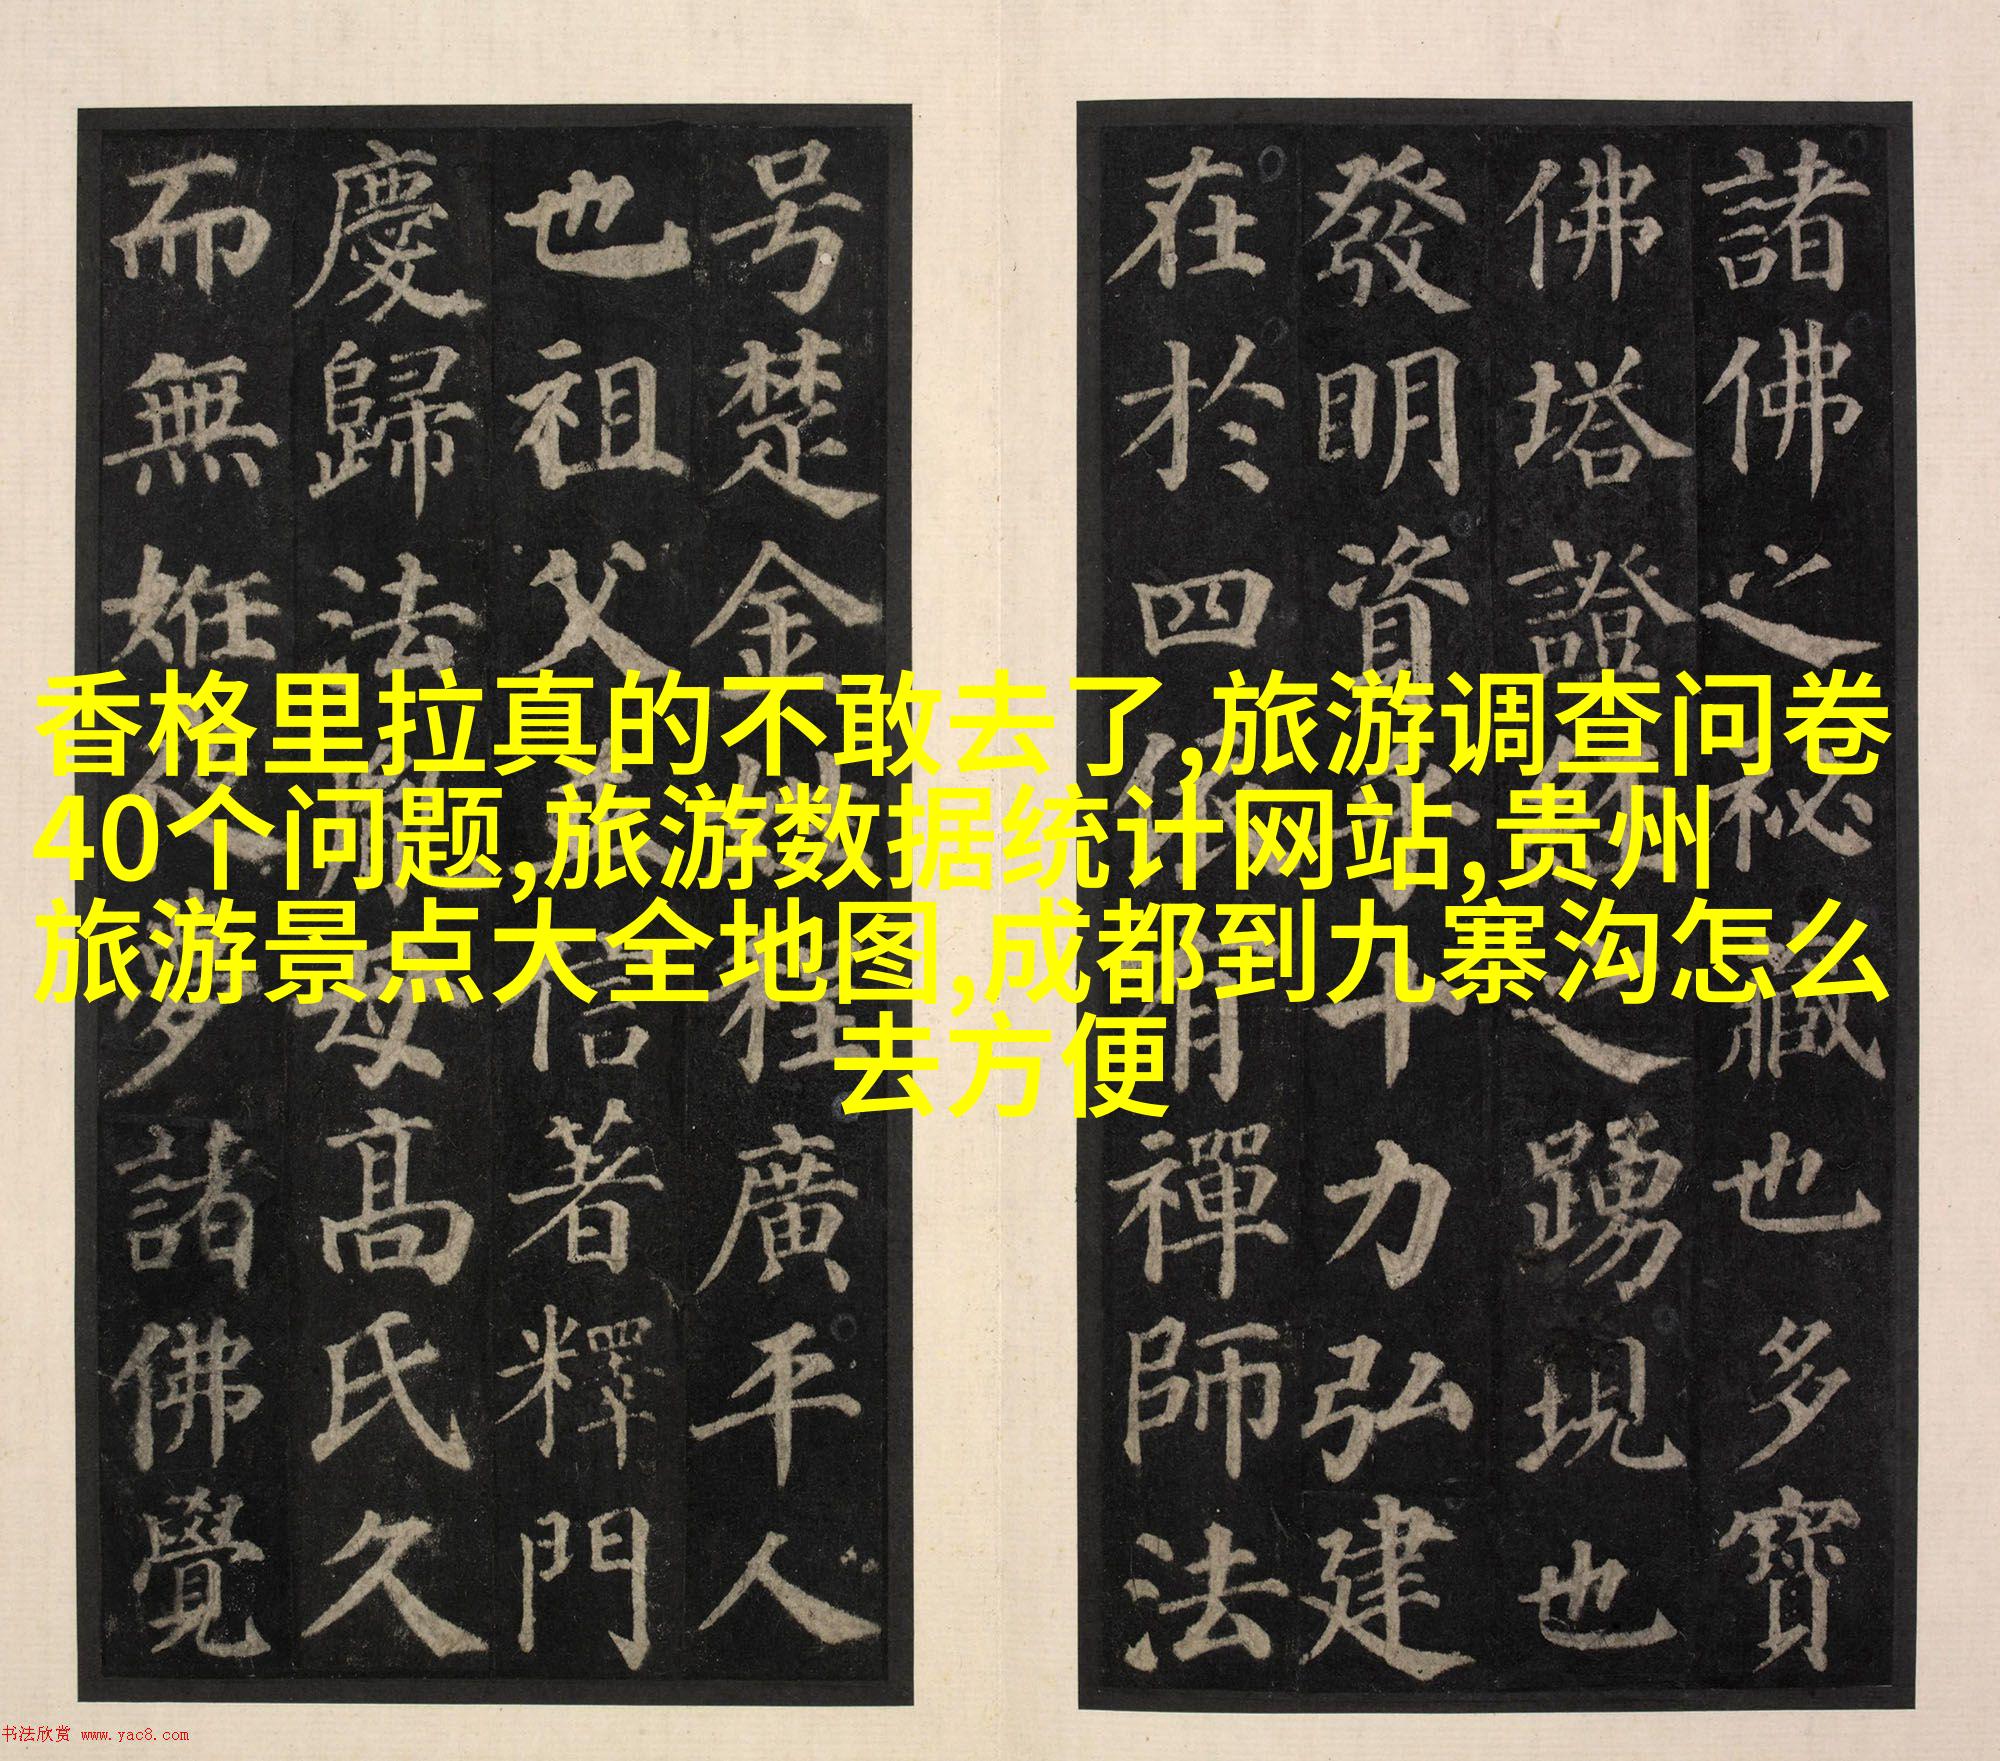 香格里拉真的不敢去了,旅游调查问卷
40个问题,旅游数据统计网站,贵州
旅游景点大全地图,成都到九寨沟怎么
去方便
諸佛之秘藏也多寶
佛塔證之踴現也
發明資乎十力弘建
在於四依有禪師法
号楚金姓程廣平人
也祖父信著釋門
慶歸法母高氏久
而無姙夜夢諸佛覺
书法欣赏 www.yac8.com